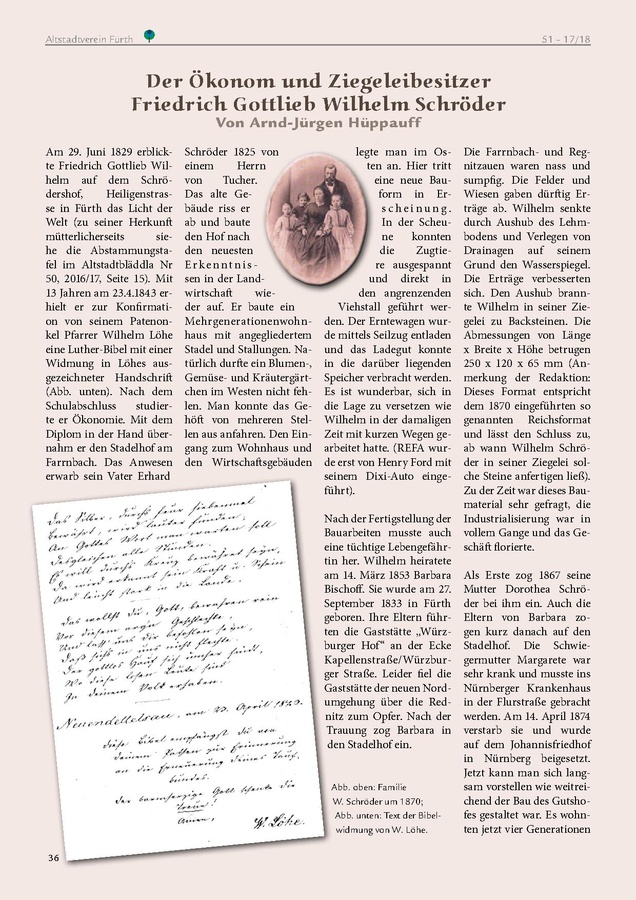 Altstadtverein Fürth
51 – 17/18
Der Ökonom und Ziegeleibesitzer
Friedrich Gottlieb Wilhelm Schröder
Von Arnd-Jürgen Hüppauff
Am 29. Juni 1829 erblick-
te Friedrich Gottlieb Wil-
helm auf dem Schrö-
dershof, Heiligenstras-
se in Fürth das Licht der
Welt (zu seiner Herkunft
mütterlicherseits sie-
he die Abstammungsta-
fel im Altstadtbläddla Nr
50, 2016/17, Seite 15). Mit
13 Jahren am 23.4.1843 er-
hielt er zur Konfirmati-
on von seinem Patenon-
kel Pfarrer Wilhelm Löhe
eine Luther-Bibel mit einer
Widmung in Löhes aus-
gezeichneter Handschrift
(Abb. unten). Nach dem
Schulabschluss studier-
te er Ökonomie. Mit dem
Diplom in der Hand über-
nahm er den Stadelhof am
Farrnbach. Das Anwesen
erwarb sein Vater Erhard
Schröder 1825 von
einem Herrn
von Tucher.
Das alte Ge-
bäude riss er
ab und baute
den Hof nach
den neuesten
Erkenntnis-
sen in der Land-
wirtschaft wie-
der auf. Er baute ein
Mehrgenerationenwohn-
haus mit angegliedertem
Stadel und Stallungen. Na-
türlich durfte ein Blumen-,
Gemüse- und Kräutergärt-
chen im Westen nicht feh-
len. Man konnte das Ge-
höft von mehreren Stel-
len aus anfahren. Den Ein-
gang zum Wohnhaus und
den Wirtschaftsgebäuden
legte man im Os-
ten an. Hier tritt
eine neue Bau-
form in Er-
scheinung.
In der Scheu-
ne konnten
die Zugtie-
re ausgespannt
und direkt in
den angrenzenden
Viehstall geführt wer-
den. Der Erntewagen wur-
de mittels Seilzug entladen
und das Ladegut konnte
in die darüber liegenden
Speicher verbracht werden.
Es ist wunderbar, sich in
die Lage zu versetzen wie
Wilhelm in der damaligen
Zeit mit kurzen Wegen ge-
arbeitet hatte. (REFA wur-
de erst von Henry Ford mit
seinem Dixi-Auto einge-
führt).
Nach der Fertigstellung der
Bauarbeiten musste auch
eine tüchtige Lebengefähr-
tin her. Wilhelm heiratete
am 14. März 1853 Barbara
Bischoff. Sie wurde am 27.
September 1833 in Fürth
geboren. Ihre Eltern führ-
ten die Gaststätte „Würz-
burger Hof“ an der Ecke
Kapellenstraße/Würzbur-
ger Straße. Leider fiel die
Gaststätte der neuen Nord-
umgehung über die Red-
nitz zum Opfer. Nach der
Trauung zog Barbara in
den Stadelhof ein.
Die Farrnbach- und Reg-
nitzauen waren nass und
sumpfig. Die Felder und
Wiesen gaben dürftig Er-
träge ab. Wilhelm senkte
durch Aushub des Lehm-
bodens und Verlegen von
Drainagen auf seinem
Grund den Wasserspiegel.
Die Erträge verbesserten
sich. Den Aushub brann-
te Wilhelm in seiner Zie-
gelei zu Backsteinen. Die
Abmessungen von Länge
x Breite x Höhe betrugen
250 x 120 x 65 mm (An-
merkung der Redaktion:
Dieses Format entspricht
dem 1870 eingeführten so
genannten Reichsformat
und lässt den Schluss zu,
ab wann Wilhelm Schrö-
der in seiner Ziegelei sol-
che Steine anfertigen ließ).
Zu der Zeit war dieses Bau-
material sehr gefragt, die
Industrialisierung war in
vollem Gange und das Ge-
schäft florierte.
Als Erste zog 1867 seine
Mutter Dorothea Schrö-
der bei ihm ein. Auch die
Eltern von Barbara zo-
gen kurz danach auf den
Stadelhof. Die Schwie-
germutter Margarete war
sehr krank und musste ins
Nürnberger Krankenhaus
in der Flurstraße gebracht
werden. Am 14. April 1874
verstarb sie und wurde
auf dem Johannisfriedhof
in Nürnberg beigesetzt.
Jetzt kann man sich lang-
sam vorstellen wie weitrei-
chend der Bau des Gutsho-
fes gestaltet war. Es wohn-
ten jetzt vier Generationen
Das Silber, durchs Feur siebenmal
bewährt, wird lauter funden;
An Gottes Wort man warten soll
desgleichen alle Stunden.
Es will durchs Kreuz bewähret seyn,
Da wird erkannt sein Kraft u. Schein
Und leucht stark in die Lande.
Das wollst du, Gott, bewahren rein
Vor diesem argen Geschlechte,
Und laß uns dir befohlen seyn,
Daß sichs in uns nicht flechte.
Der gottlos Hauf sich umher findt,
Wo diese losen Leute sind
In deinem Volk erhaben.
Neuendettelsau, am 23. April 1843.
Diese Bibel empfängst du von
deinem Pathen zur Erinnerung
an die Erneuerung deines Tauf-
bundes.
Der barmherzige Gott schenke dir
Treue!
Amen,
W. Löhe.
Abb. oben: Familie
W. Schröder um 1870;
Abb. unten: Text der Bibel-
widmung von W. Löhe.
36